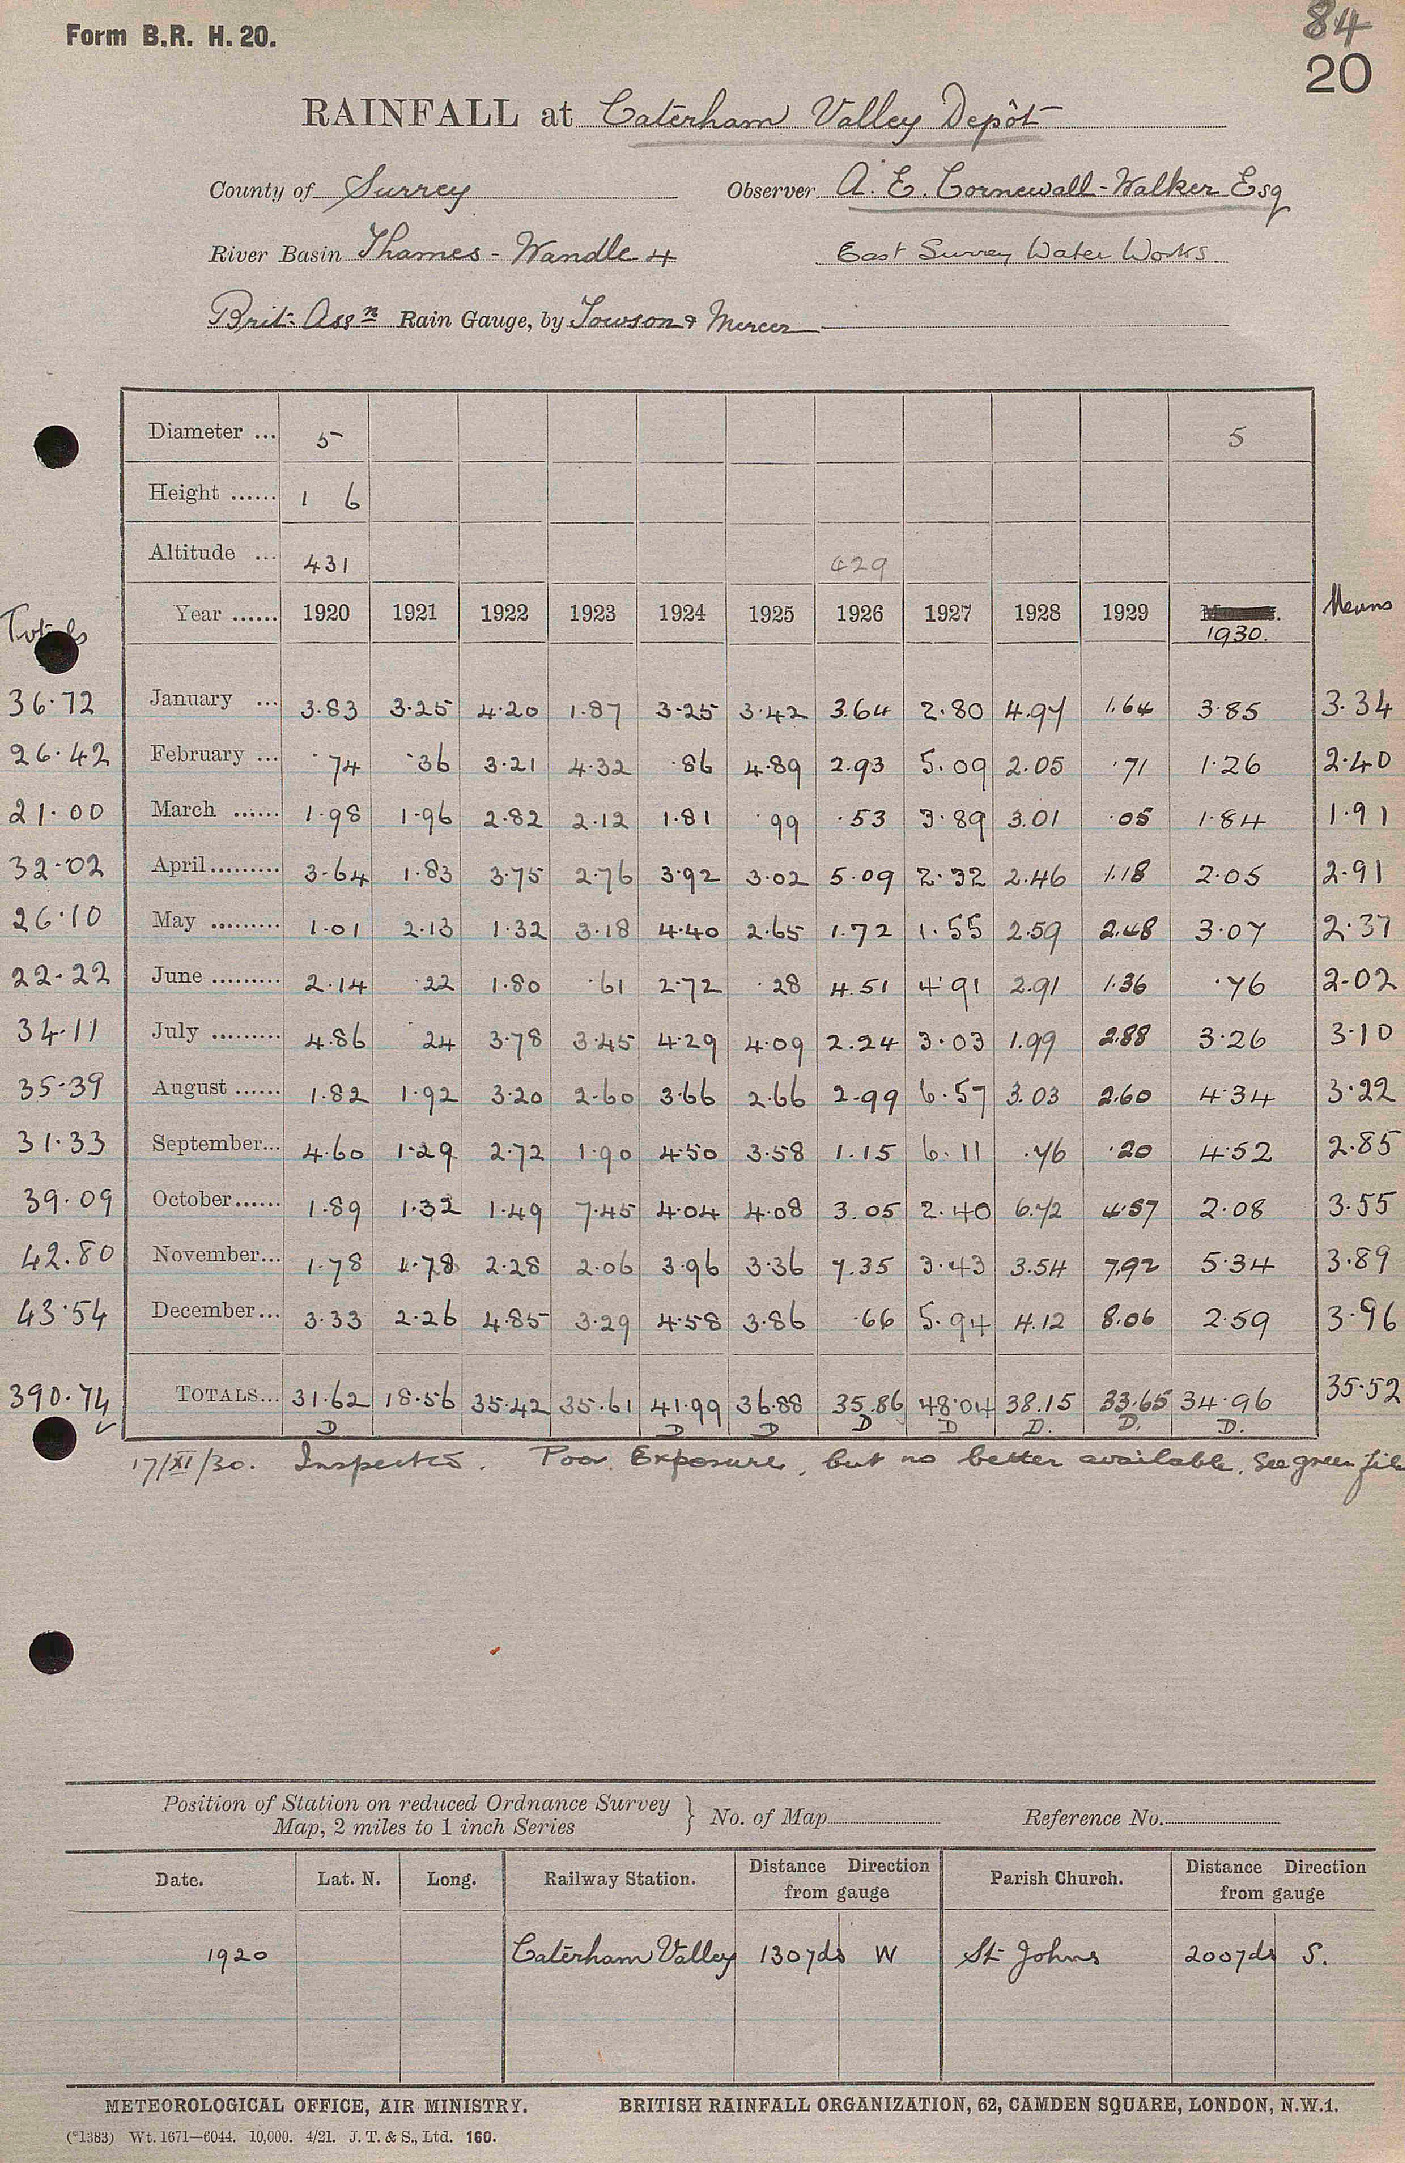 84
Form B.R. H. 20.
20
RAINFALL at Caterham Valley Depôt
County of Surrey Observer A. E. Cornewall-Walker Esq
River Basin Thames - Wandle 4 East Surrey Water Works.
Brit. Assn Rain Gauge, by Towson & Mercer
Diameter ... 5 5
Height ...... 1 6
Altitude ... 431 429
Totals Year ...... 1920 1921 1922 1923 1924 1925 1926 1927 1928 1929 1930. Means
36.72 January ... 3.83 3.25 4.20 1.87 3.25 3.42 3.64 2.80 4.97 1.64 3.85 3.34
26.42 February ... .74 .36 3.21 4.32 .86 4.89 2.93 5.09 2.05 .71 1.26 2.40
21.00 March ...... 1.98 1.96 2.82 2.12 1.81 .99 .53 3.89 3.01 .05 1.84 1.91
32.02 April ......... 3.64 1.83 3.75 2.76 3.92 3.02 5.09 2.32 2.46 1.18 2.05 2.91
26.10 May ......... 1.01 2.13 1.32 3.18 4.40 2.65 1.72 1.55 2.59 2.48 3.07 2.37
22.22 June ......... 2.14 .22 1.80 .61 2.72 .28 4.51 4.91 2.91 1.36 .76 2.02
34.11 July ......... 4.86 .24 3.78 3.45 4.29 4.09 2.24 3.03 1.99 2.88 3.26 3.10
35.39 August ...... 1.82 1.92 3.20 2.60 3.66 2.66 2.99 6.57 3.03 2.60 4.34 3.22
31.33 September... 4.60 1.29 2.72 1.90 4.50 3.58 1.15 6.11 .76 .20 4.52 2.85
39.09 October...... 1.89 1.32 1.49 7.45 4.04 4.08 3.05 2.40 6.72 4.57 2.08 3.55
42.80 November... 1.78 1.78 2.28 2.06 3.96 3.36 7.35 3.43 3.54 7.92 5.34 3.89
43.54 December... 3.33 2.26 4.85 3.29 4.58 3.86 .66 5.94 4.12 8.06 2.59 3.96
390.74 TOTALS... 31.62 18.56 35.42 35.61 41.99 36.88 35.86 48.04 38.15 33.65 34.96 35.52
D D D D D D. D. D.
17/XI/30. Inspected. Poor Exposure, but no better available. See green file
Position of Station on reduced Ordnance Survey
Map, 2 miles to 1 inch Series } No. of Map Reference No.
Date. Lat. N. Long. Railway Station. Distance Direction from gauge Parish Church. Distance Direction from gauge
1920 Caterham Valley 130yds W St Johns 200yds S.
METEOROLOGICAL OFFICE, AIR MINISTRY. BRITISH RAINFALL ORGANIZATION, 62, CAMDEN SQUARE, LONDON, N.W.1.
(*1383) Wt. 1671—6044. 10,000. 4/21. J. T. & S., Ltd. 160.